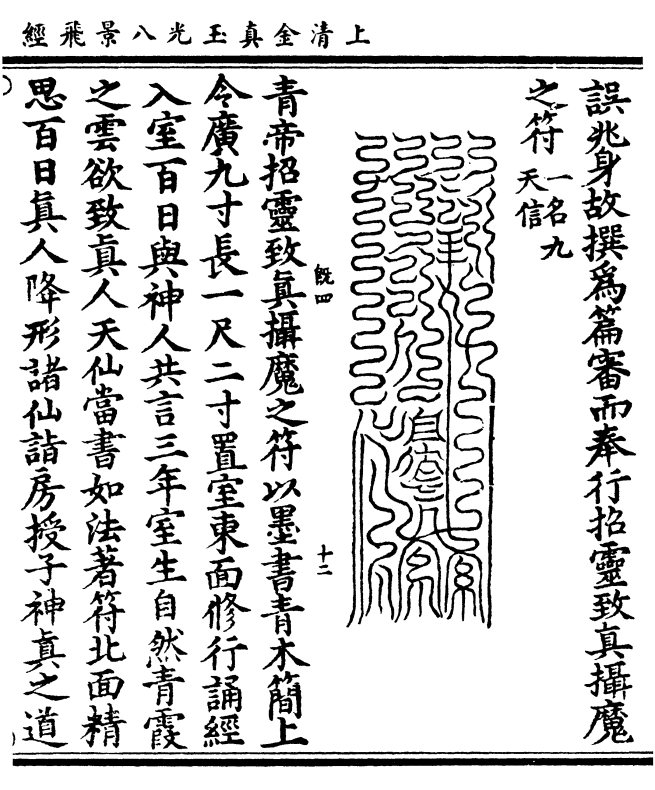 上清金真玉光八景飛經
誤兆身故撰爲篇審而奉行招靈致真攝魔
之符一名九
天信
旣四
十二
青帝招靈致真攝魔之符以墨書青木簡上
令廣九寸長一尺二寸置室東面修行誦經
入室百日與神人共言三年室生自然青霞
之雲欲致真人天仙當書如法著符北面精
思百日真人降形諸仙詣房授子神真之道